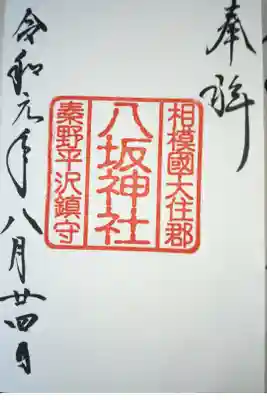 奉拝
相模國大住郡
八坂神社
秦野平沢鎮守
令和元年八月廿四日